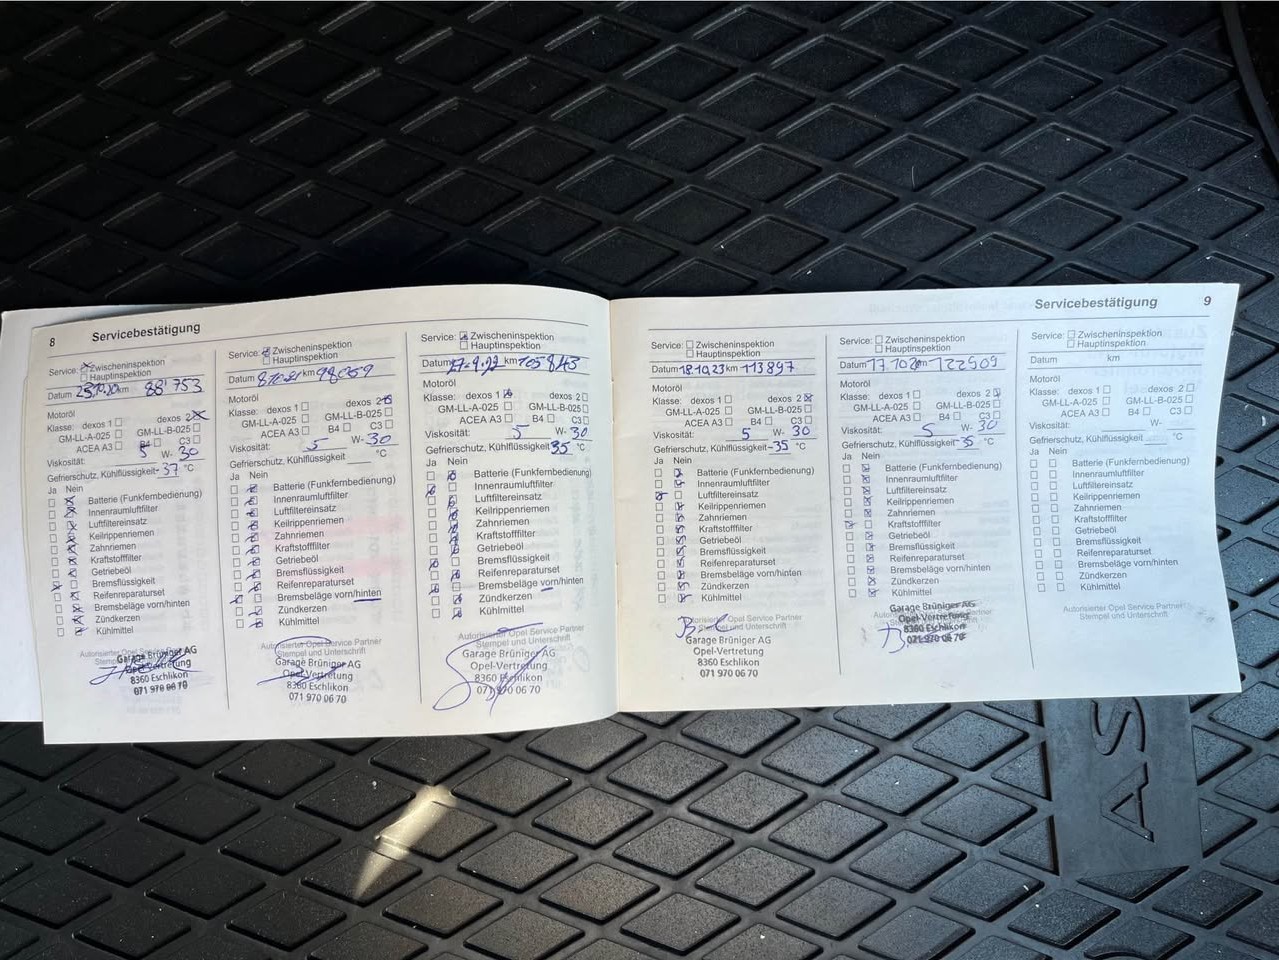 8 Servicebestätigung
Service: Zwischeninspektion
Hauptinspektion
Datum km 88'753
Motoröl
Klasse: dexos 1 dexos 2
GM-LL-A-025 GM-LL-B-025
ACEA A3 B4 C3
Viskosität: 5 W- 30
Gefrierschutz, Kühlflüssigkeit -37 °C
Ja Nein
Batterie (Funkfernbedienung)
Innenraumluftfilter
Luftfiltereinsatz
Keilrippenriemen
Zahnriemen
Kraftstofffilter
Getriebeöl
Bremsflüssigkeit
Reifenreparaturset
Bremsbeläge vorn/hinten
Zündkerzen
Kühlmittel
Autorisierter Opel Service Partner
Stempel und Unterschrift
Garage Brüniger AG
Opel-Vertretung
8360 Eschlikon
071 970 06 70
Service: Zwischeninspektion
Hauptinspektion
Datum 8.10.21 km
Motoröl
Klasse: dexos 1 dexos 2
GM-LL-A-025 GM-LL-B-025
ACEA A3 B4 C3
Viskosität: 5 W- 30
Gefrierschutz, Kühlflüssigkeit °C
Ja Nein
Batterie (Funkfernbedienung)
Innenraumluftfilter
Luftfiltereinsatz
Keilrippenriemen
Zahnriemen
Kraftstofffilter
Getriebeöl
Bremsflüssigkeit
Reifenreparaturset
Bremsbeläge vorn/hinten
Zündkerzen
Kühlmittel
Autorisierter Opel Service Partner
Stempel und Unterschrift
Garage Brüniger AG
Opel-Vertretung
8360 Eschlikon
071 970 06 70
Service: Zwischeninspektion
Hauptinspektion
Datum 27.9.22 km 105 843
Motoröl
Klasse: dexos 1 dexos 2
GM-LL-A-025 GM-LL-B-025
ACEA A3 B4 C3
Viskosität: 5 W- 30
Gefrierschutz, Kühlflüssigkeit 35 °C
Ja Nein
Batterie (Funkfernbedienung)
Innenraumluftfilter
Luftfiltereinsatz
Keilrippenriemen
Zahnriemen
Kraftstofffilter
Getriebeöl
Bremsflüssigkeit
Reifenreparaturset
Bremsbeläge vorn/hinten
Zündkerzen
Kühlmittel
Autorisierter Opel Service Partner
Stempel und Unterschrift
Garage Brüniger AG
Opel-Vertretung
8360 Eschlikon
071 970 06 70
Servicebestätigung 9
Service: Zwischeninspektion
Hauptinspektion
Datum 18.10.23 km 113897
Motoröl
Klasse: dexos 1 dexos 2
GM-LL-A-025 GM-LL-B-025
ACEA A3 B4 C3
Viskosität: 5 W- 30
Gefrierschutz, Kühlflüssigkeit -35 °C
Ja Nein
Batterie (Funkfernbedienung)
Innenraumluftfilter
Luftfiltereinsatz
Keilrippenriemen
Zahnriemen
Kraftstofffilter
Getriebeöl
Bremsflüssigkeit
Reifenreparaturset
Bremsbeläge vorn/hinten
Zündkerzen
Kühlmittel
Autorisierter Opel Service Partner
Stempel und Unterschrift
Garage Brüniger AG
Opel-Vertretung
8360 Eschlikon
071 970 06 70
Service: Zwischeninspektion
Hauptinspektion
Datum 122509
Motoröl
Klasse: dexos 1 dexos 2
GM-LL-A-025 GM-LL-B-025
ACEA A3 B4 C3
Viskosität: 5 W- 30
Gefrierschutz, Kühlflüssigkeit -35 °C
Ja Nein
Batterie (Funkfernbedienung)
Innenraumluftfilter
Luftfiltereinsatz
Keilrippenriemen
Zahnriemen
Kraftstofffilter
Getriebeöl
Bremsflüssigkeit
Reifenreparaturset
Bremsbeläge vorn/hinten
Zündkerzen
Kühlmittel
Garage Brüniger AG
Autorisierter Opel Service Partner
Opel-Vertretung
8360 Eschlikon
071 970 06 70
Service: Zwischeninspektion
Hauptinspektion
Datum km
Motoröl
Klasse: dexos 1 dexos 2
GM-LL-A-025 GM-LL-B-025
ACEA A3 B4 C3
Viskosität: W-
Gefrierschutz, Kühlflüssigkeit °C
Ja Nein
Batterie (Funkfernbedienung)
Innenraumluftfilter
Luftfiltereinsatz
Keilrippenriemen
Zahnriemen
Kraftstofffilter
Getriebeöl
Bremsflüssigkeit
Reifenreparaturset
Bremsbeläge vorn/hinten
Zündkerzen
Kühlmittel
Autorisierter Opel Service Partner
Stempel und Unterschrift
AS